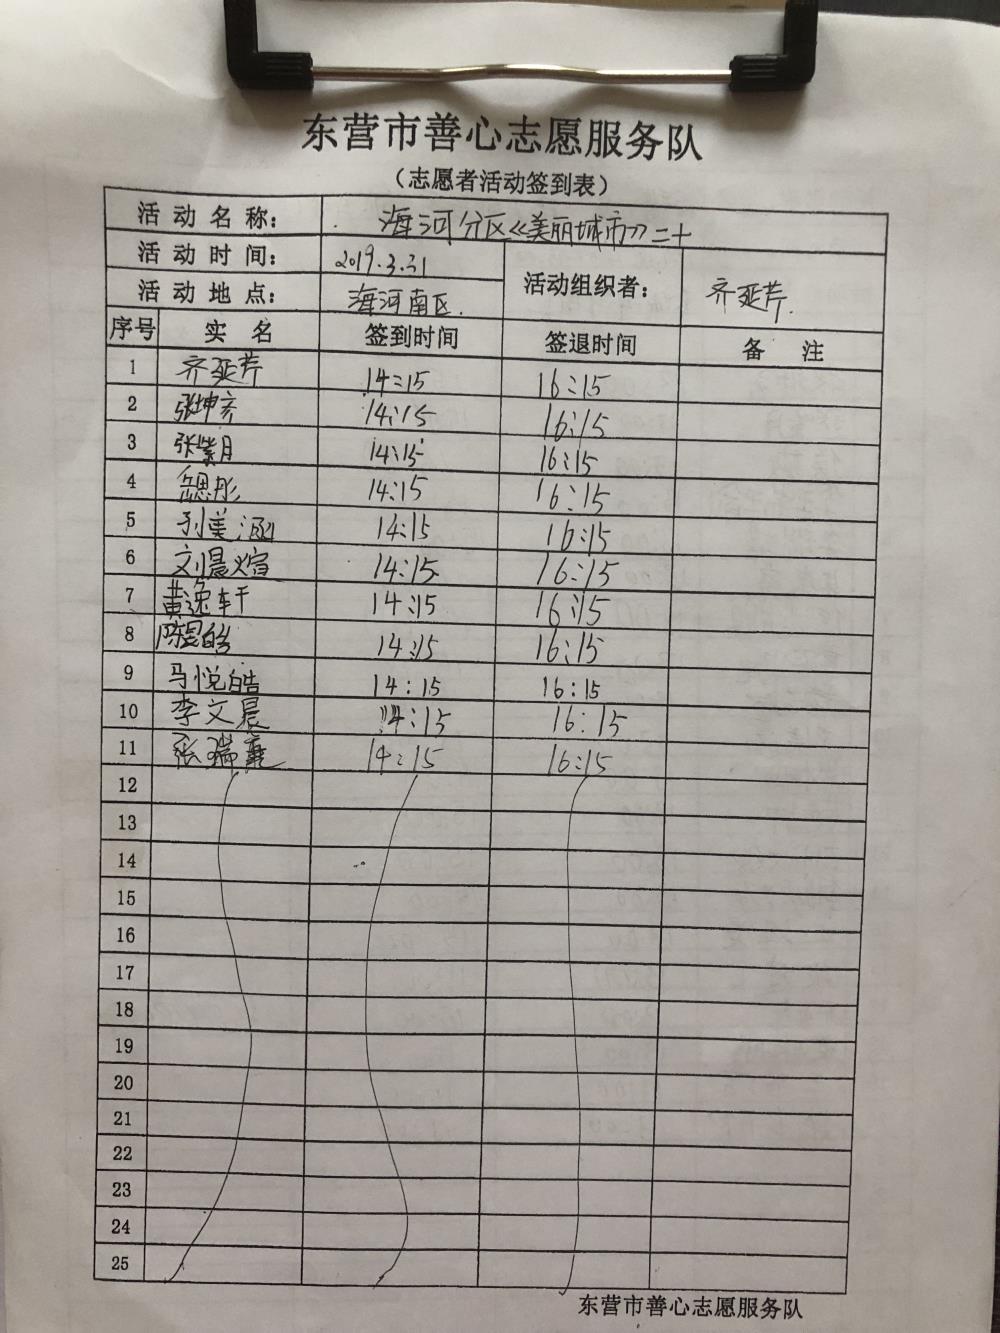 东营市善心志愿服务队
（志愿者活动签到表）
活动名称： 海河分区《美丽城市》二十
活动时间： 2019.3.31 活动组织者： 齐延芹
活动地点： 海河南区.
序号 实名 签到时间 签退时间 备注
1 齐延芹 14:15 16:15
2 张坤彦 14:15 16:15
3 张紫月 14:15 16:15
4 14:15 16:15
5 孙美涵 14:15 16:15
6 刘晨煊 14:15 16:15
7 黄逸轩 14:15 16:15
8 陈昱皓 14:15 16:15
9 马悦皓 14:15 16:15
10 李文晨 14:15 16:15
11 张瑞 14:15 16:15
12
13
14
15
16
17
18
19
20
21
22
23
24
25
东营市善心志愿服务队